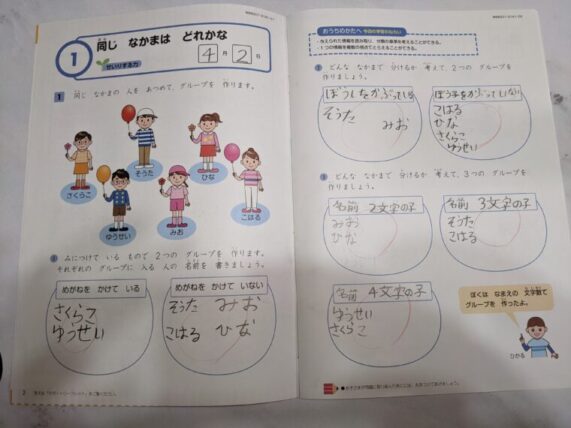 1
同じ なかまは どれかな
せいりする力
4月2日
1 同じ なかまの 人を あつめて、グループを 作ります。
さくらこ
そうた
ひな
ゆうせい
みお
こはる
みに つけて いる もので 2つの グループを 作ります。
それぞれの グループに 入る 人の 名前を 書きましょう。
めがねを かけて いる
さくらこ
ゆうせい
めがねを かけて いない
そうた みお
こはる ひな
2
おうちのかたへ 今日の学習のねらい
・与えられた情報を読み取り、分類の基準を考えることができる。
・1つの情報を複数の視点でとらえることができる。
どんな なかまで 分けるか 考えて、2つの グループを
作りましょう。
ぼうしをかぶっている
そうた
みお
ぼう子をかぶっていない
こはる
ひな
さくらこ
ゆうせい
どんな なかまで 分けるか 考えて、3つの グループを
作りましょう。
名前 2文字の子
みお
ひな
名前 3文字の子
そうた
こはる
名前 4文字の子
ゆうせい
さくらこ
ぼくは なまえの 文字数で
グループを 作ったよ。
ひかる